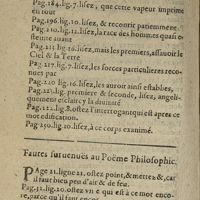 Pag.184.lig.7.lisez, que cette vapeur imprime
en tout
Pag.196.lig.10.lisez, & recourir patiemment
Pag.211.lig.12.lisez, la race des hommes quasi e-
steinte auant
Pag.215 lig.16.lisez, mais les premiers, assauoir le
Ciel & la Terre
Pag.217.lig.7.lisez, les forces particulieres recon-
nues par
Pag.220.lig.16.lisez, les auroit ainsi establies,
Pag.221.premiere & seconde, lisez, angeli-
quement esclaircy la diuinité
Pag.222.lig.8.ostez l'interrogant qui est apres ce
mot edification.
Pag 250.lig.20.lisez, à ce corps examiné.
Fautes suruenues au Poëme Philosophic.
PAge 21.ligne 21.ostez point, & mettez &, car
il faut bien peu d'air & de feu.
Pag.32.lig.20.ostez vn e qui est à ce mot enco-
re, parce qu'il faut encor